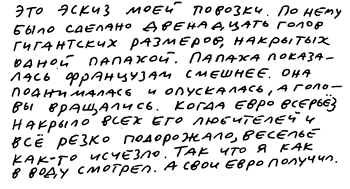 это эскиз моей повозки. По нему
было сделано двенадцать голов
гигантских размеров, накрытых
одной папахой. Папаха показа-
лась французам смешнее. она
поднималась и опускалась, а голо-
вы вращались. когда евро всерьёз
накрыло всех его любителей и
всё резко подорожало, веселье
как-то исчезло. Так что я как
в воду смотрел. А свои евро получил.